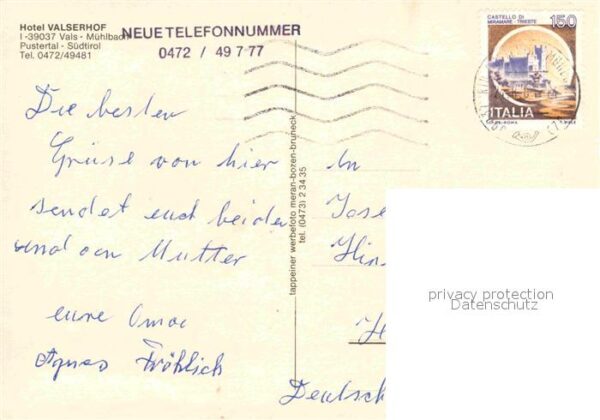 Hotel VALSERHOF
I-39037 Vals - Mühlbach
Pustertal - Südtirol
Tel. 0472/49481
NEUE TELEFONNUMMER
0472 / 49 7 77
CASTELLO DI
MIRAMARE - TRIESTE
150
ITALIA
Die besten
Grüse von hier
sendet euch beiden
und on Mutter
eure Omaa
Agnes Fröhlich
tappeiner werbefoto meran-bozen-bruneck
tel. (0473) 2 34 35
In
Jose
Hin
H
Deutsch
privacy protection
Datenschutz